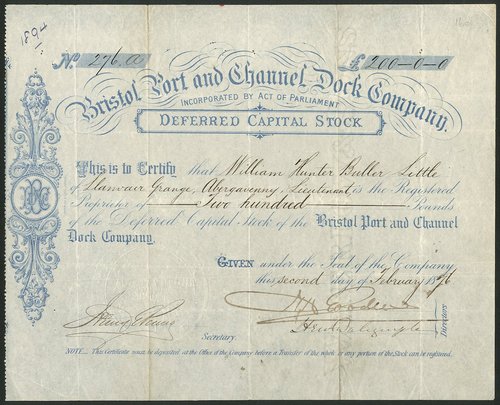 1894
No. 276.00 £ 200-0-0
Bristol Port and Channel Dock Company,
INCORPORATED BY ACT OF PARLIAMENT
DEFERRED CAPITAL STOCK
This is to Certify that William Hunter Butler Little
of Llanvair Grange, Abergavenny, Lieutenant is the Registered
Proprietor of Two hundred Pounds
of the Deferred Capital Stock of the Bristol Port and Channel
Dock Company.
GIVEN under the Seal of the Company
this second day of February 1876
Directors
Secretary.
NOTE. This Certificate must be deposited at the Office of the Company before a Transfer of the whole or any portion of the Stock can be registered.